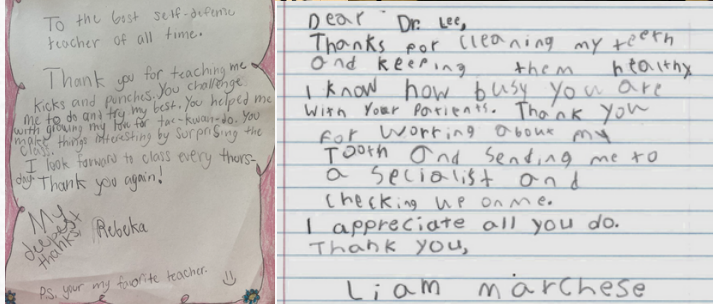 To the best self-defense
teacher of all time.
Thank you for teaching me
kicks and punches. You challenge
me to do and try my best. You helped me
with growing my love for tae-kwan-do. You
make things interesting by surprising the
class.
I look forward to class every thurs-
day Thank you again!
My
deepest
thanks!
Rebeka
P.S. your my favorite teacher.
Dear Dr. Lee,
Thanks for cleaning my teeth
and keeping them healthy
I know how busy you are
with your patients. Thank you
for worring about my
Tooth and sending me to
a secialist and
checking up on me.
I appreciate all you do.
Thank you,
Liam Marchese